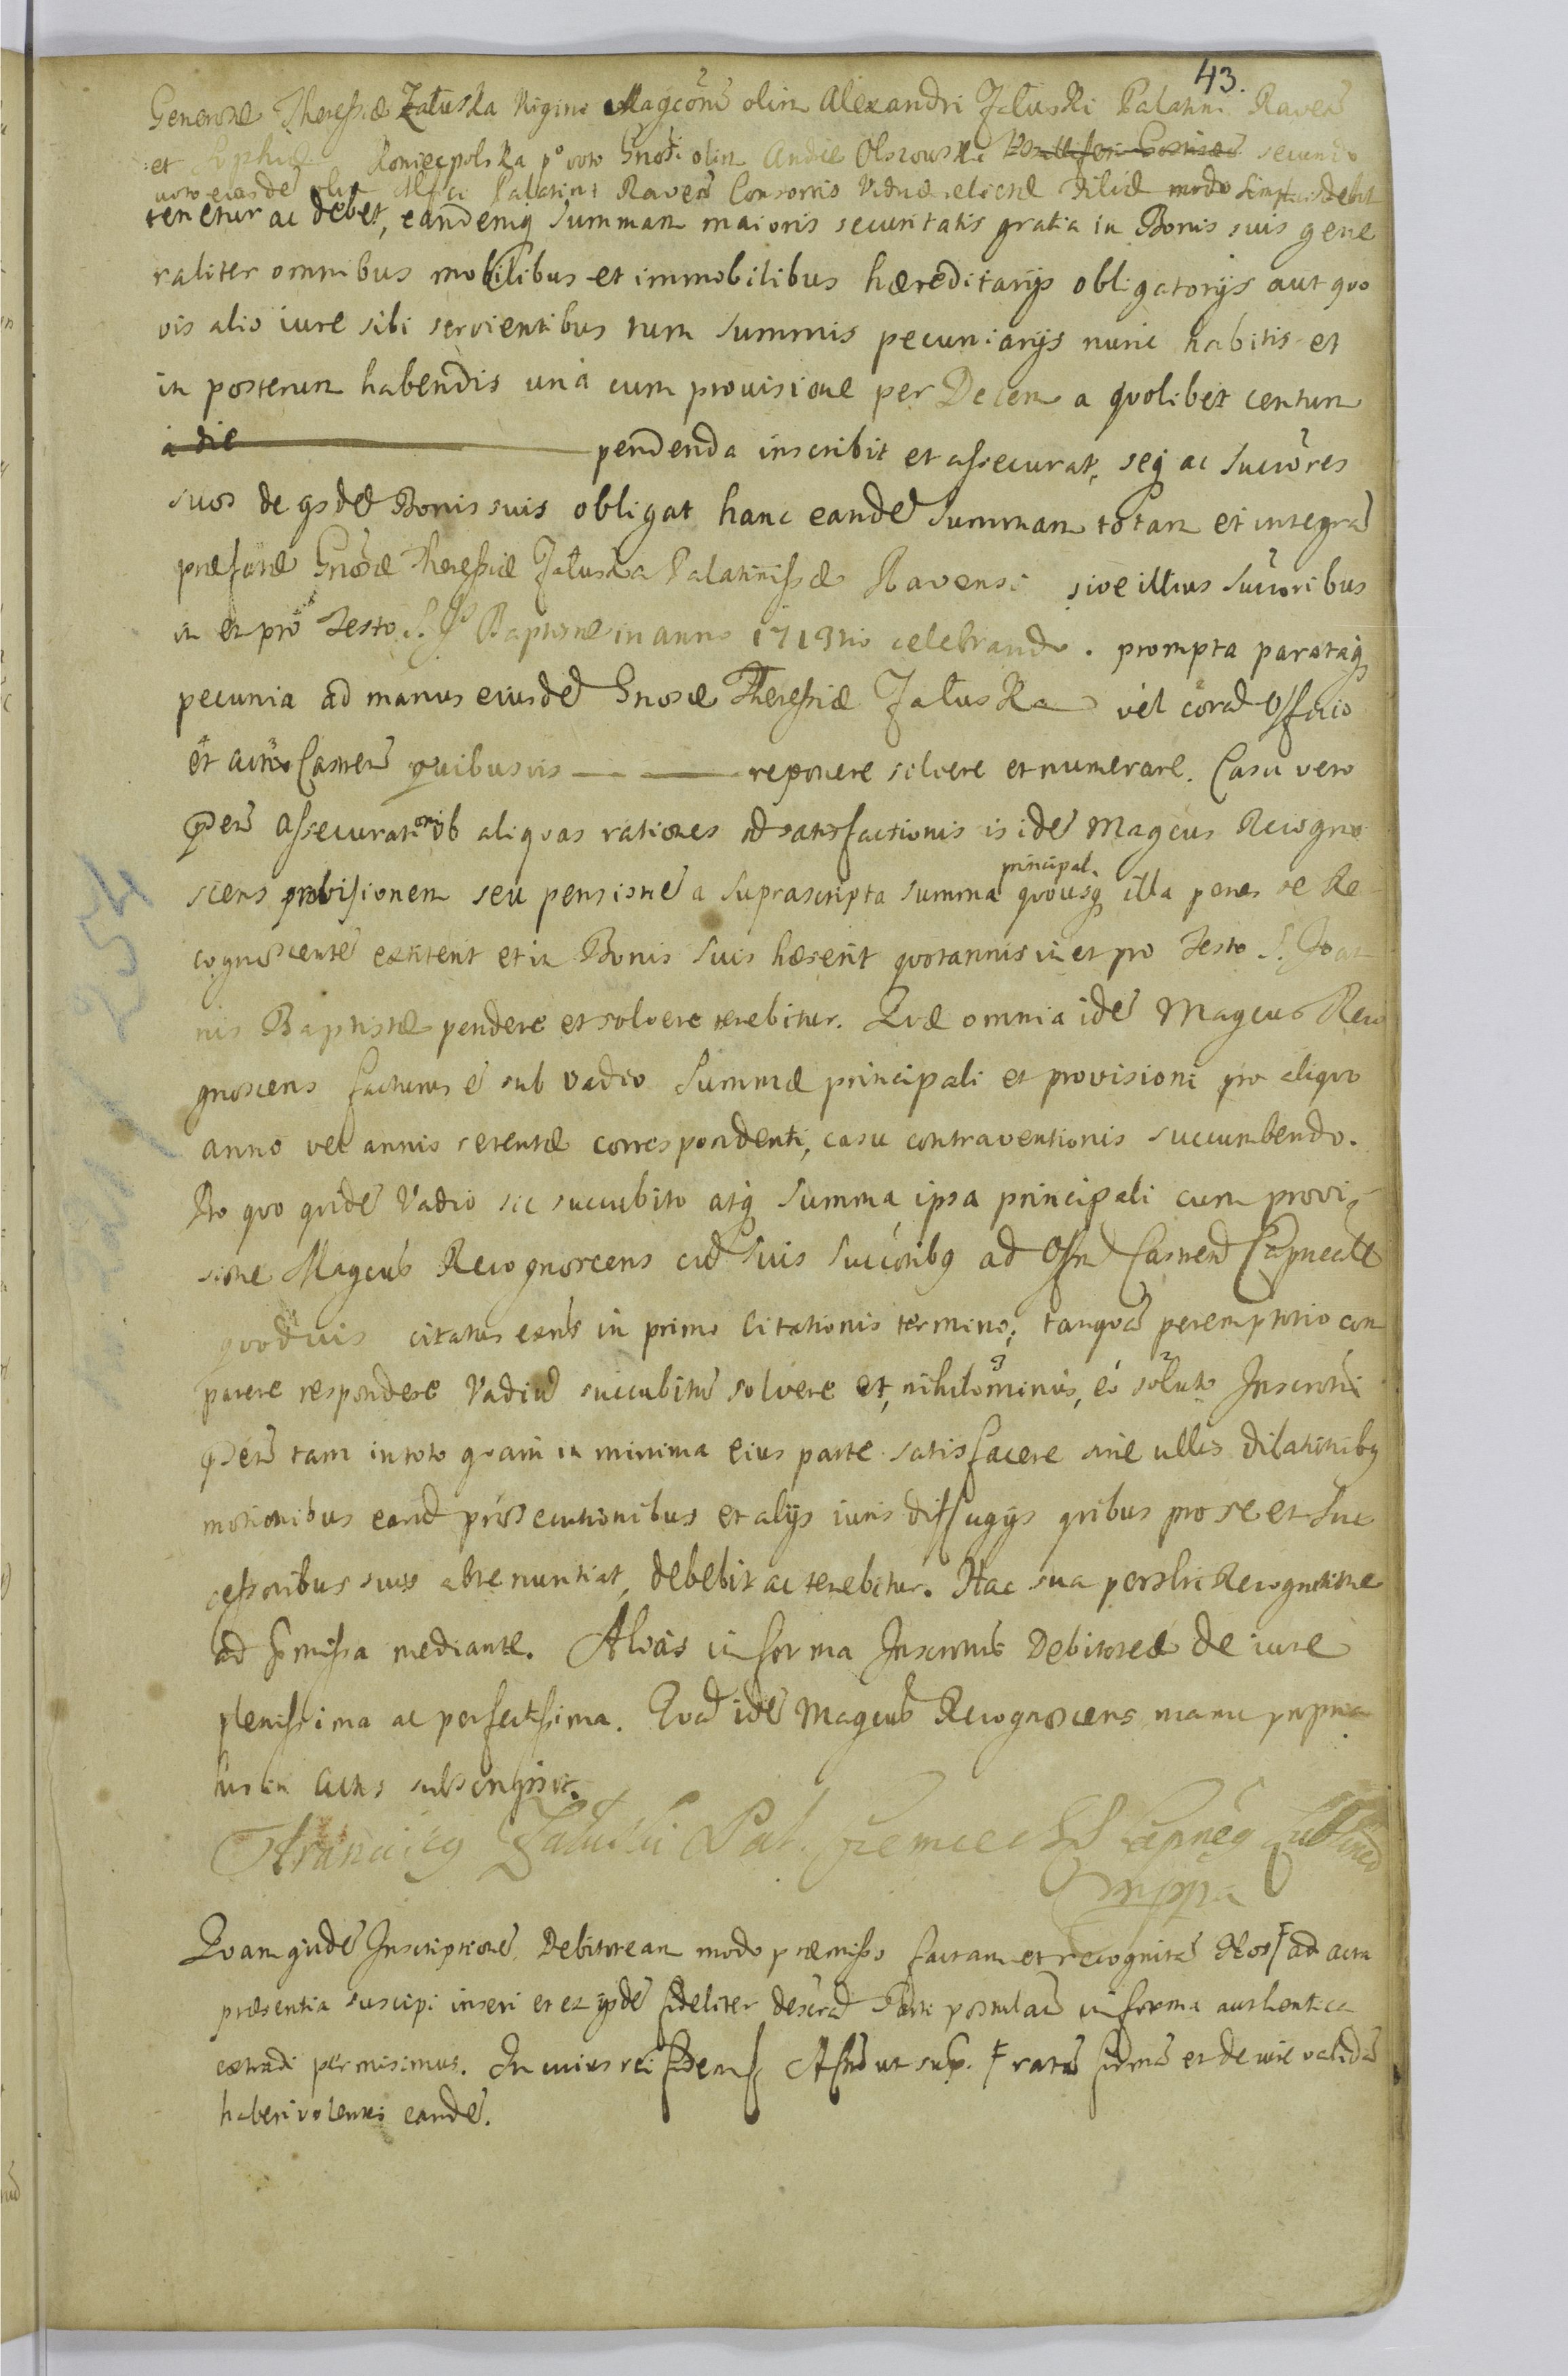 43.
Generosæ Theressiæ Załuska Virgini Magcõrũ olim Alexandri Załuski Palatini Raveñ
et Sophiæ Koniecpolska pº voto Gnosi olim Andreæ Olszowski secundo
voto eiusdẽ olim Mfci Palatini Raveñ Consortis Viduæ relictæ Filiæ modo
tenetur ac debet, eandemq summam maioris securitatis gratia in Bonis suis gene
raliter omnibus mobilibus et immobilibus hæreditarijs obligatorijs aut quo
vis alio iure sibi servientibus tum summis pecuniarijs nunc habitis et
in posterum habendis una cum provisione per Decem a quolibet centum
a die ——— pendenda inscribit et assecurat, seq ac Succõres
suos de ijsdẽ Bonis suis obligat hanc eandẽ summam totam et integrã
præfatæ Gnosæ Theressiæ Załuska Palatinissæ Ravensi sive illius Succoribus
in et pro Festo S. Jois Baptistæ in anno 1713tio celebrando. prompta parataq
pecunia ad manus eiusdẽ Gnosæ Theressiæ Załuska vel corã Officio
et actis Castreñ quibusvis ——— reponere solvere et numerare. Casu vero
Pñtis Assecurationi ob aliquas rationes nõ satisfactionis is idẽ Magcus Recogno
scens provisionem seu pensionẽ a suprascripta summa principal. quousq illa penes se Re
cognoscentẽ extiterit et in Bonis suis hæserit quotannis in et pro Festo S. Joan
nis Baptistæ pendere et solvere tenebitur. Quæ omnia idẽ Magcus Reco
gnoscens facturus ẽ sub vadio Summæ principali et provisioni pro aliquo
anno vel annis retentæ correspondenti, casu contraventionis succumbendo.
Pro quo quidẽ Vadio sic succubito atq summa ipsa principali cum provi
sione Magcus Recognoscens cũ suis succoribq ad Offm Castreñ Capneale
quodvis citatus exñs in primo Citationis termino, tanquã peremptorio com
parere respondere Vadiũ succubitũ solvere et, nihilominus, eo soluto Inscrõni
Pñti tam in toto quam in minima eius parte satisfacere sine ullis dilationibq
motionibus earũ prosecutionibus et alijs iuris diffugijs quibus pro se et suc
cessoribus suis abrenuntiat, debebit ac tenebitur. Hac sua persnli Recognitione
ad præmissa mediante. Alias in forma Inscrõnis Debitoreæ de iure
plenissima ac perfectissima. Quã idẽ Magcus Recognoscens manu propria
his in actis subscripsit.
Franciscq Załuski Pal. Czerniec
mppa
Quam quidẽ Inscriptionẽ Debitoream modo præmisso factam et recognitã Nos ad acta
præsentia suscipi inseri et ex ijsdẽ fideliter descriptã Parti postulanti in forma authentica
extradi permisimus. In cuius rei fidem Actũ ut sup. ratã firmã et de iure validã
haberi volentes eandẽ.